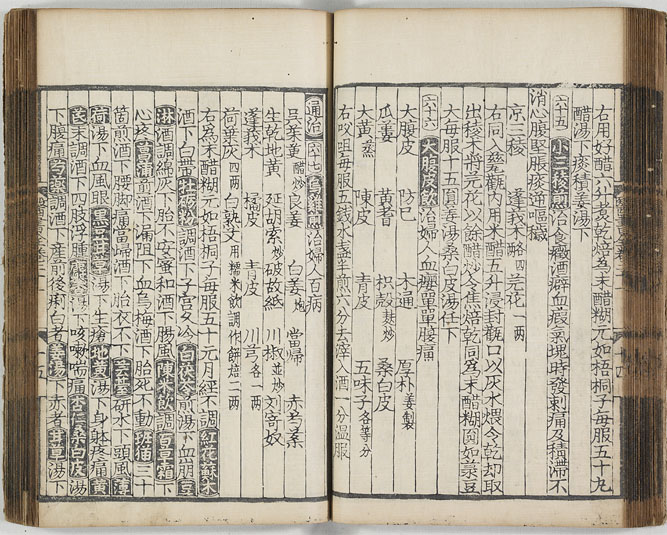 右用好醋六升煮乾焙爲末醋糊元如梧桐子每服五十丸
醋湯下痰積姜湯下
六十五 小三稜煎治食癥酒癖血瘕氣塊時發刺痛及積滯不
消心腹堅脹痰逆嘔穢
京三稜 蓬莪朮各四兩 芫花一兩
右同入甆觀內用米醋五升浸封觀口以灰火煨令乾却取
出稜朮將芫花以餘醋炒令焦焙乾同爲末醋糊元如菉豆
大每服十五元姜湯桑白皮湯任下
六十六 大腹皮飮治婦人血癭單單腹痛
大腹皮 防己 木通 厚朴姜製
瓜蔞 黃耆 枳殼麸炒 桑白皮
大黃蒸 陳皮 靑皮 五味子各等分
右㕮咀每服五錢水盞半煎六分去滓入酒一分溫服
通治 六十七 治婦人百病
吳茱萸醋炒 良姜 白姜炮 當歸 赤芍藥
生乾地黃 延胡索炒 破故紙 川椒並炒 劉寄奴
蓬莪朮 橘皮 靑皮 川芎各一兩
荷葉灰四兩 白熟艾用糯米飮調作餠焙二兩
右爲末醋糊元如梧桐子每服五十元月經不調紅花蘇木
酒下白帶牡礪粉調酒下子宮久冷白茯苓煎湯下血崩豆
淋酒調綿灰下胎不安蜜和酒下腸風陳米飮調百草霜下
心疼菖蒲煎酒下漏阻下血烏梅酒下胎死不動斑猫三十
箇煎酒下腰脚痛當歸酒下胎衣不下芸薹研水下頭風薄
荷湯下血風眼黑豆甘草湯下生瘡地黃湯下身體疼痛黃
芪末調酒下四肢浮腫 下咳嗽喘痛杏仁桑白皮湯
下腹痛芍藥調酒下産前後痢白者姜湯下赤者甘草湯下